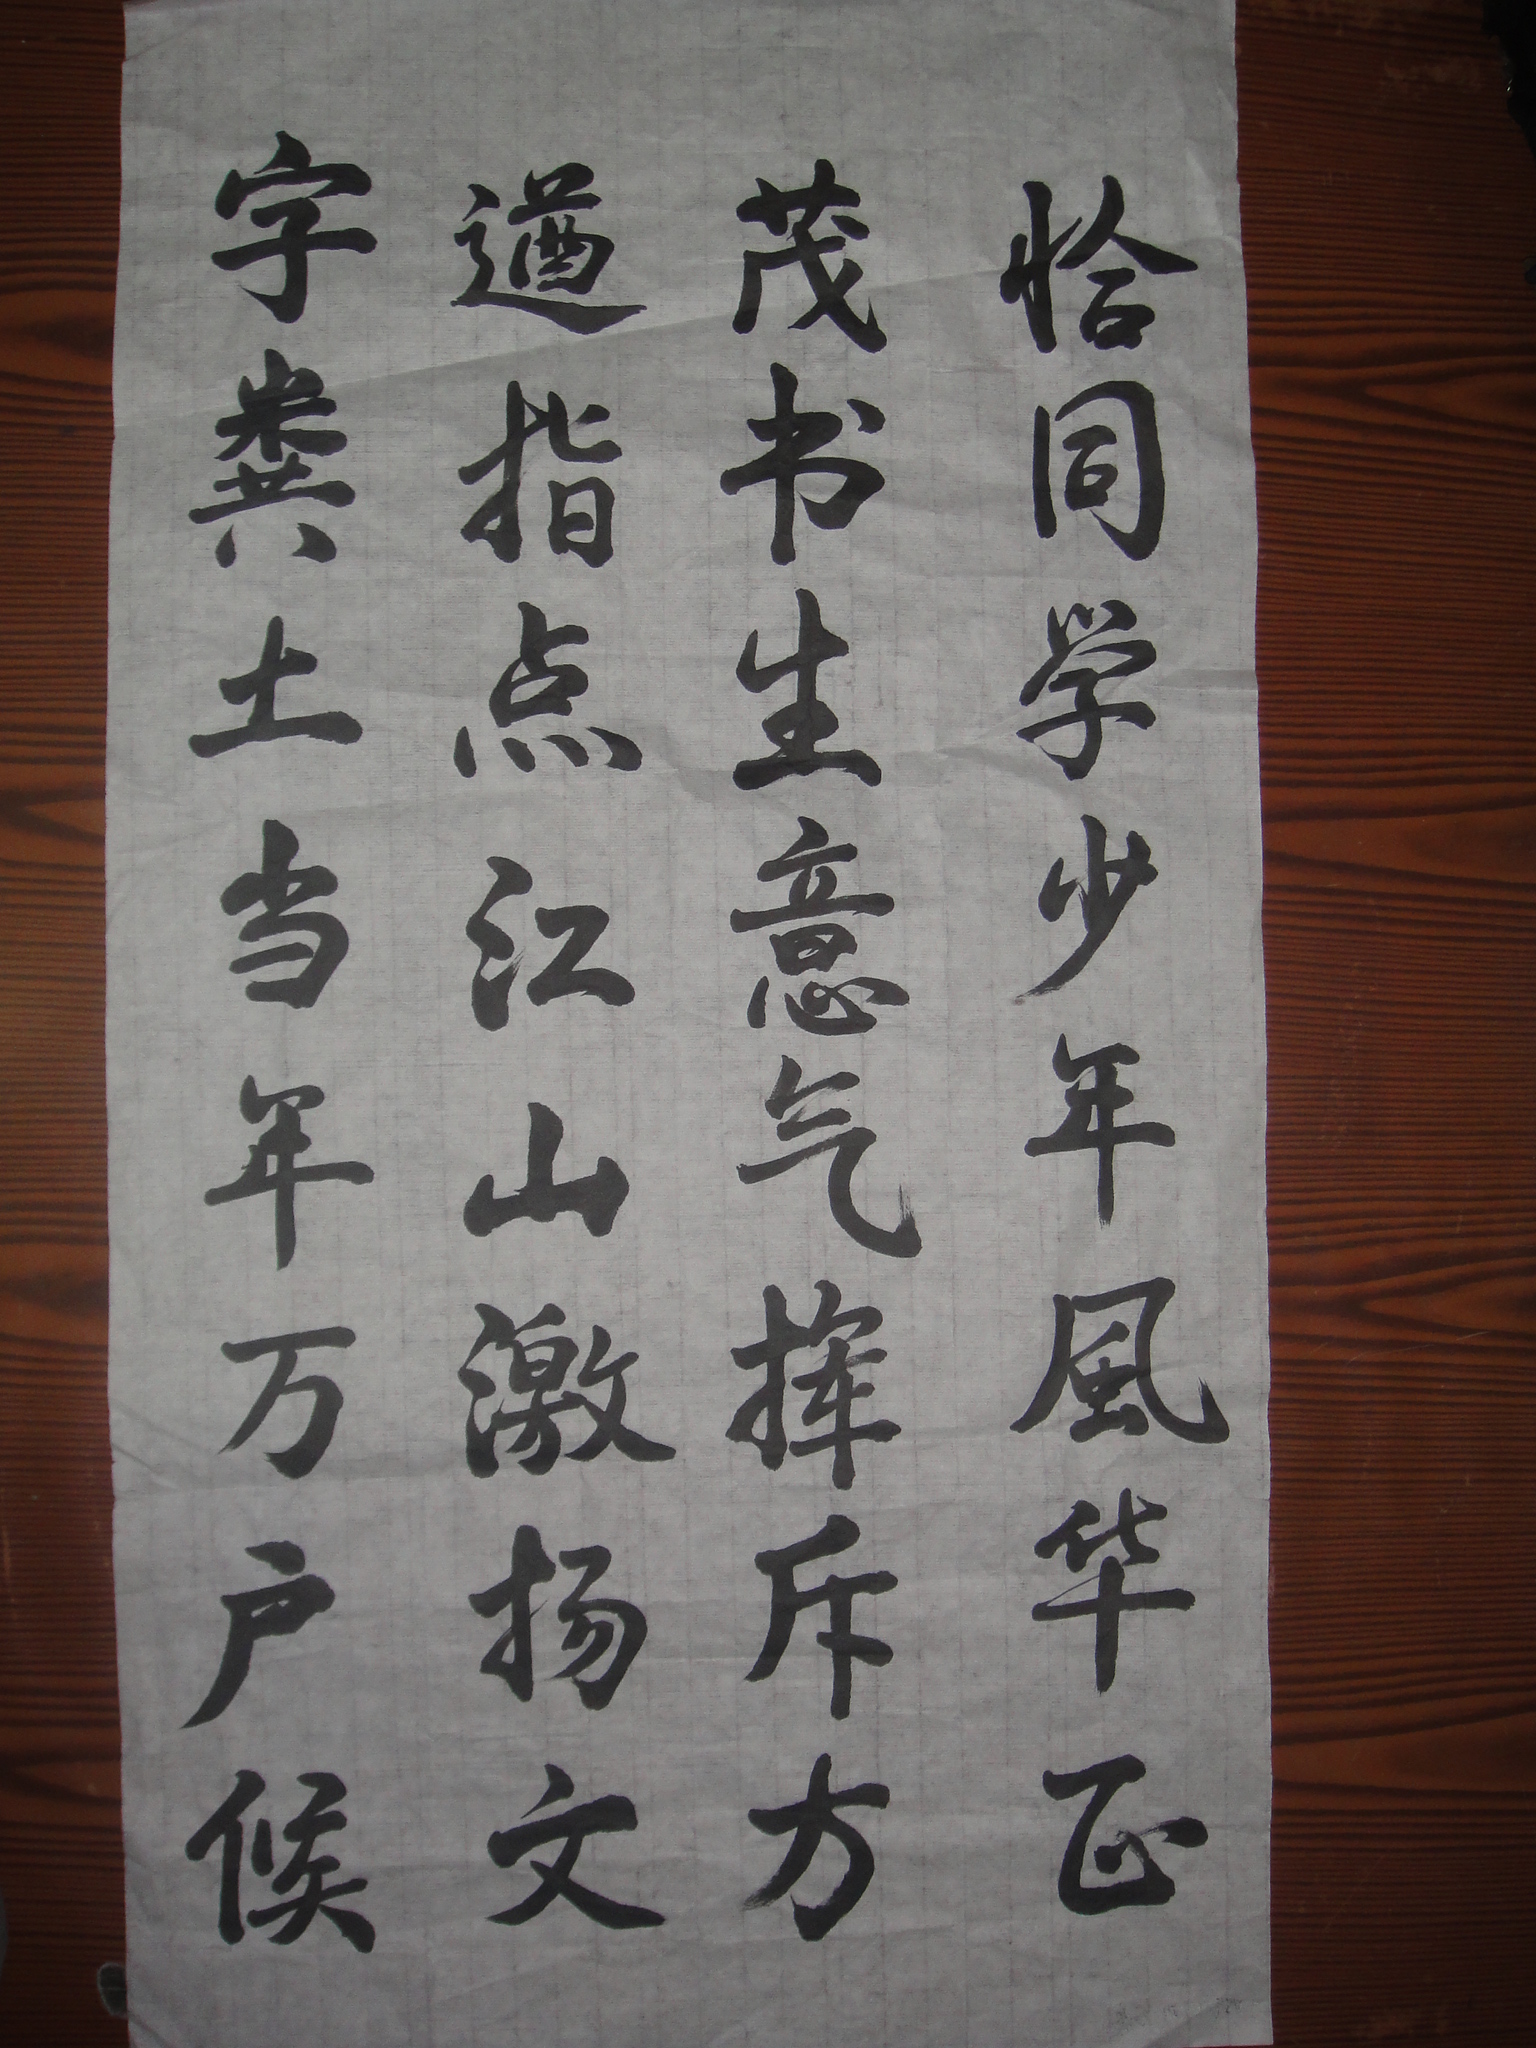 恰同学少年風华正
茂书生意气挥斥方
遒指点江山激扬文
字粪土当年万户候